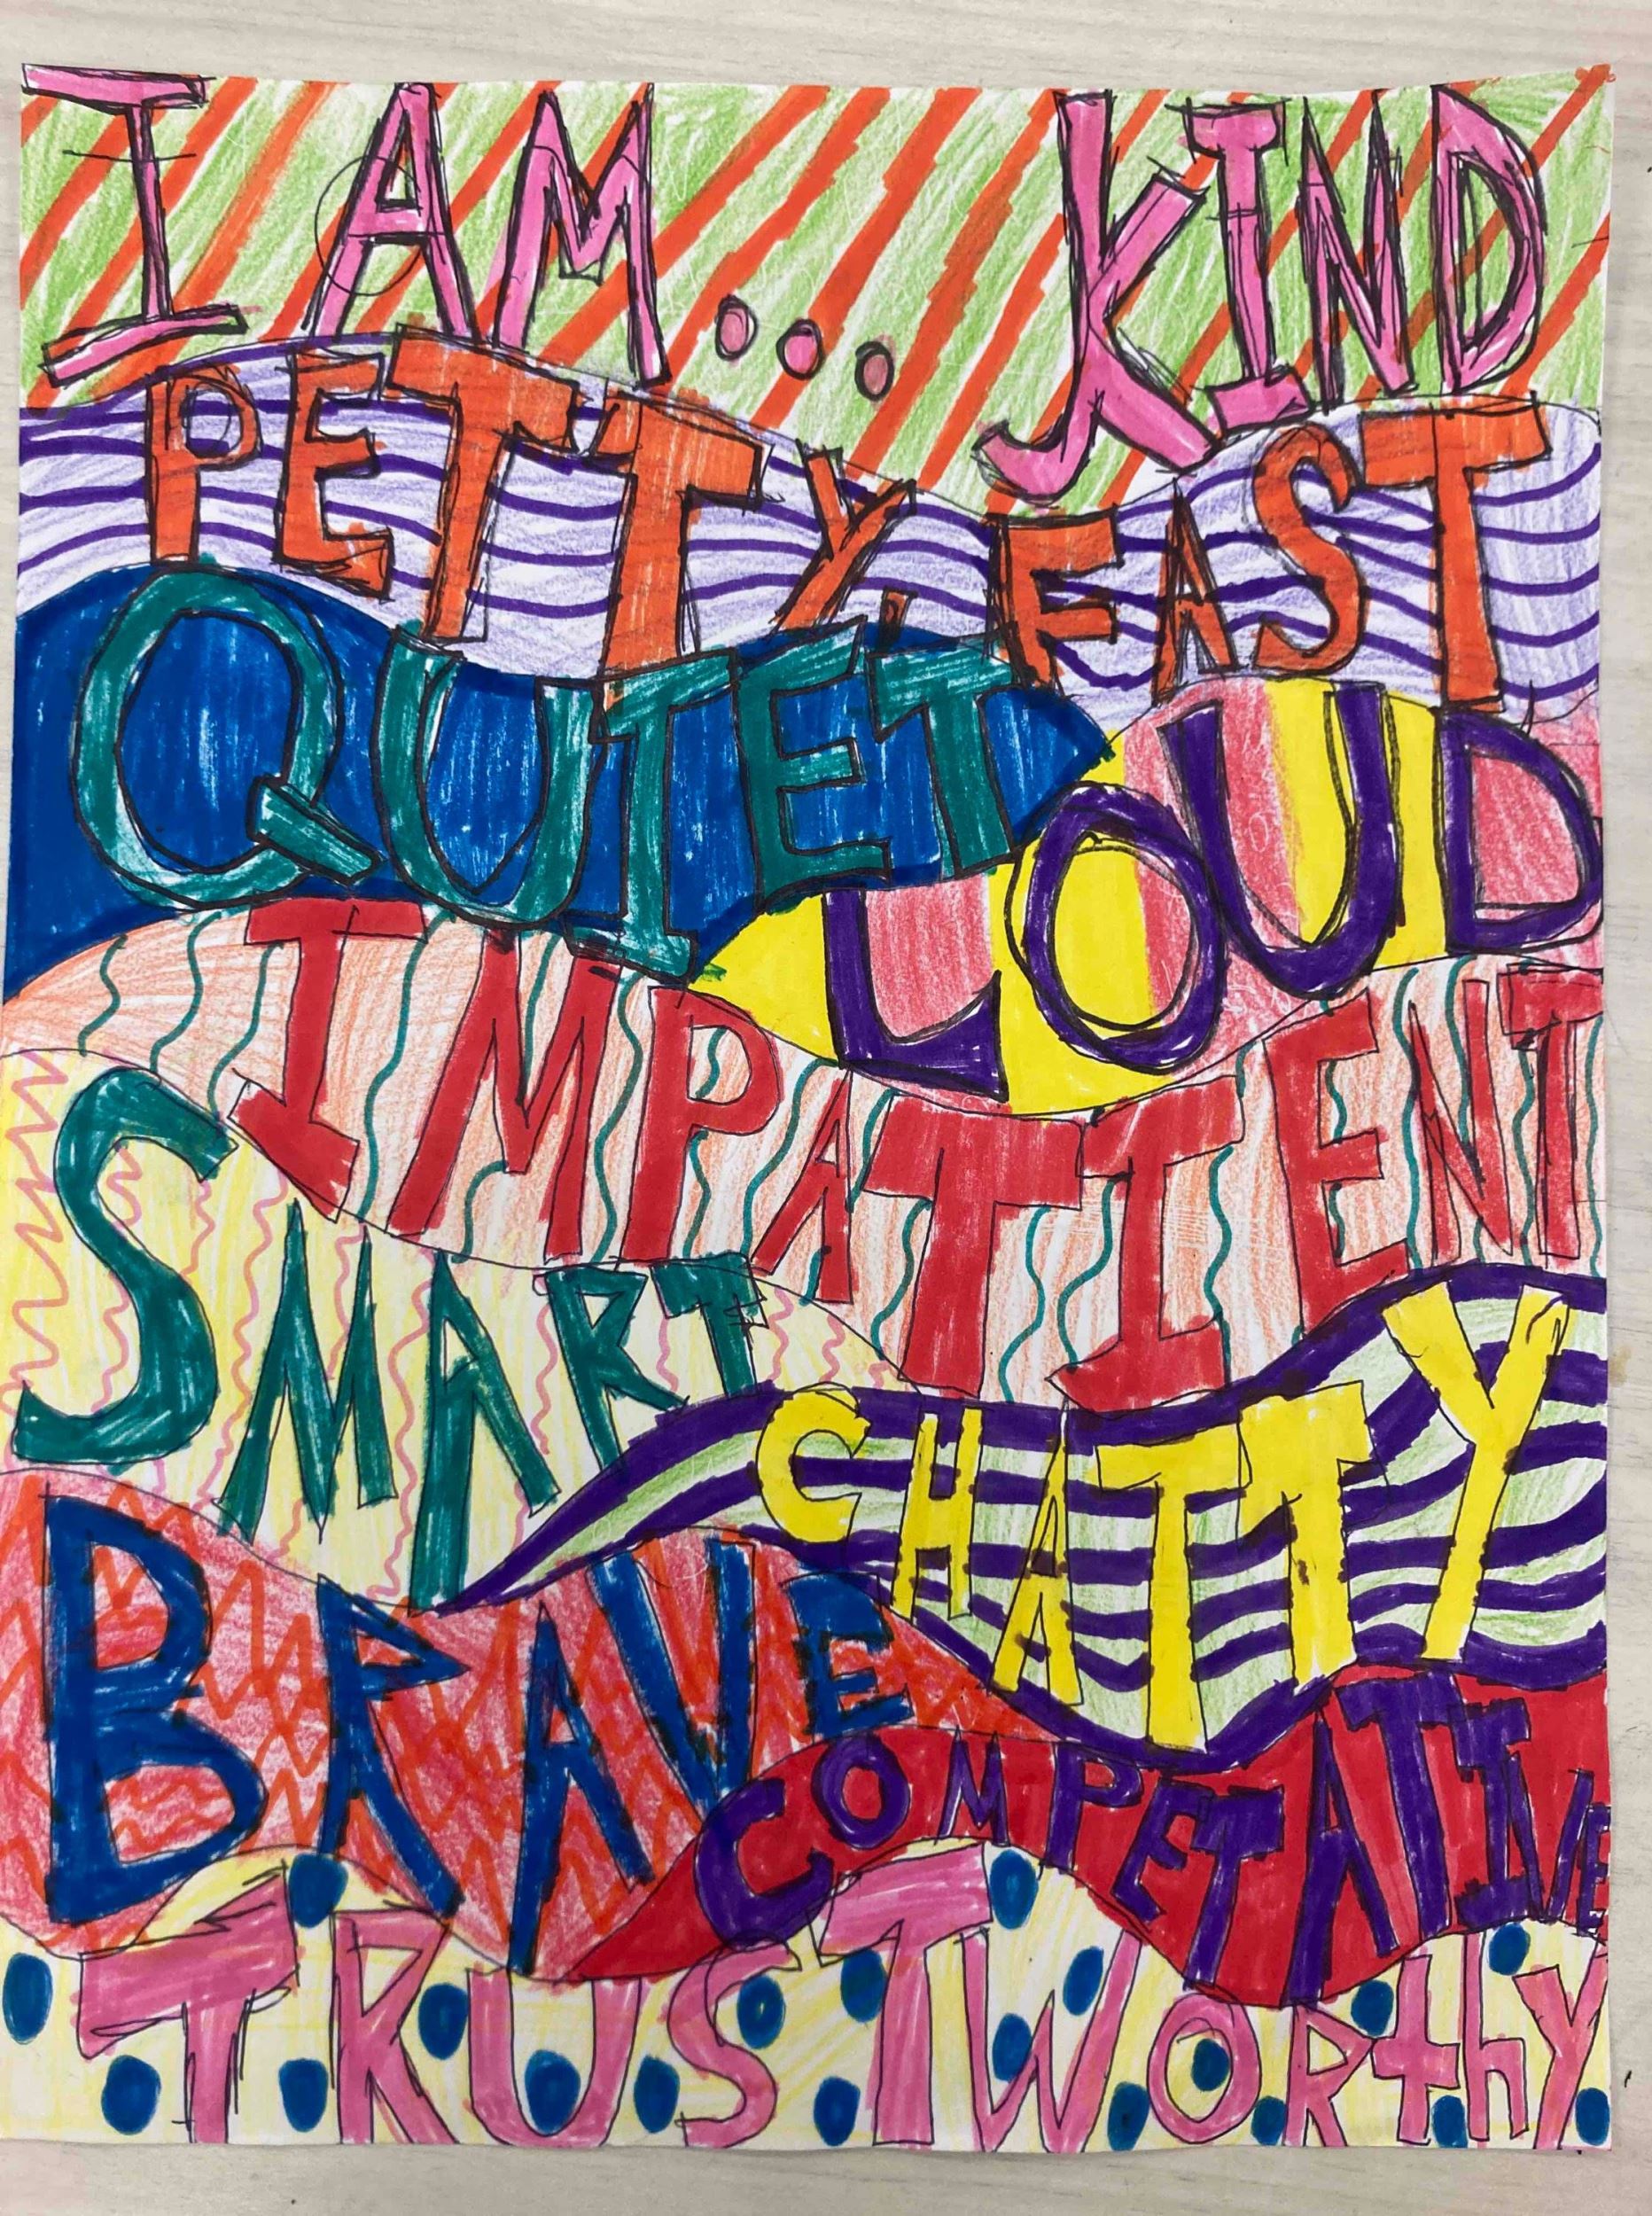 I AM... KIND
PETTY, FAST
QUIET LOUD
IMPATIENT
SMART
CHATTY
BRAVE
COMPETATIVE
TRUSTWORthY